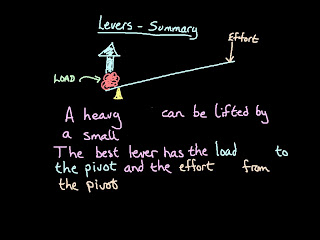 Levers - Summary
Effort
LOAD
A heavy can be lifted by
a small
The best lever has the load to
the pivot and the effort from
the pivot